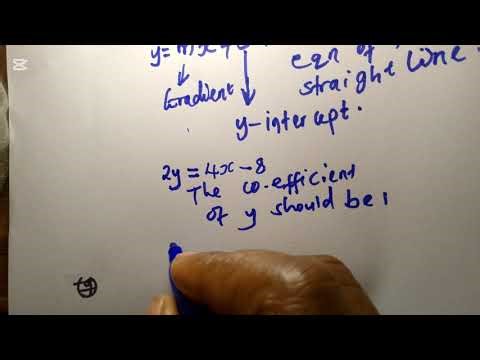 y=mx+c
eqn of
straight line
Gradient
y-intercept.
2y=4x-8
The co-efficient
of y should be 1